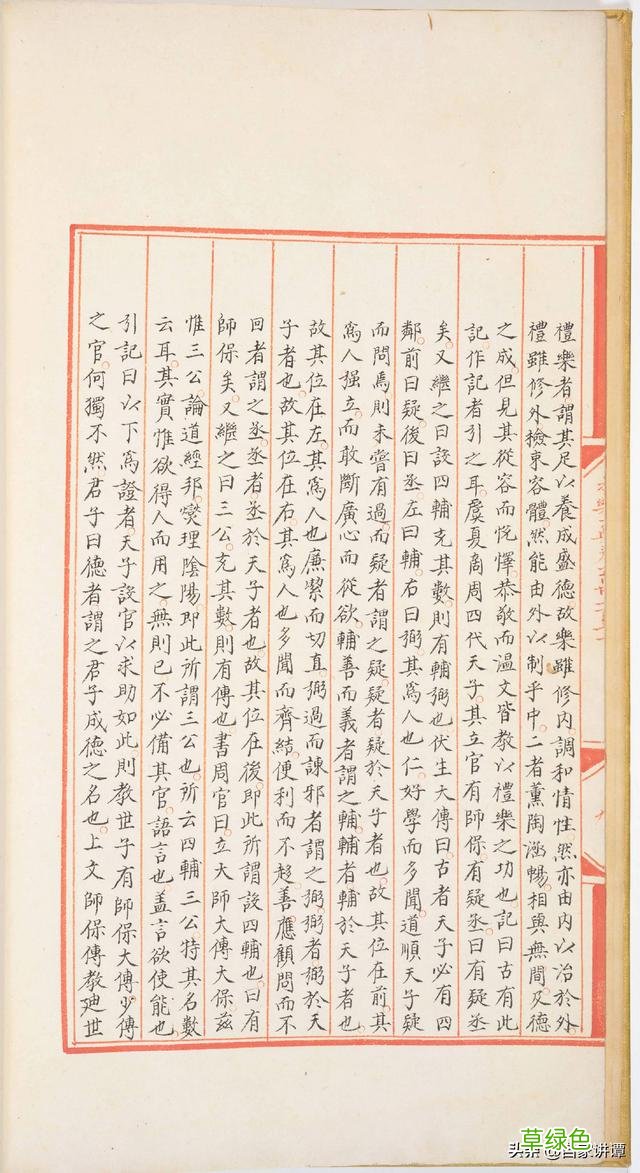 禮樂者謂其足以養成盛德故樂雖修内調和情性然亦由内以洽於外
禮雖修外撿束容體然能由外以制乎中二者薰陶涵暢相與無間及德
之成但見其從容而悦懌恭敬而温文皆教以禮樂之功也記曰古有此
記作記者引之耳虞夏商周四代天子其立官有師保有疑丞曰有疑丞
矣又繼之曰設四輔充其數則有輔弼也伏生大傳曰古者天子必有四
鄰前曰疑後曰丞左曰輔右曰弼其為人也仁好學而多聞道順天子疑
而問焉則未嘗有過而疑者謂之疑疑者疑於天子者也故其位在前其
為人强立而敢斷廣心而從欲輔善而義者謂之輔輔者輔於天子者也
故其位在左其為人也廉絜而切直弼過而諫邪者謂之弼弼者弼於天
子者也故其位在右其為人也多聞而齊結便利而不起善應顧問而不
回者謂之丞丞者丞於天子者也故其位在後即此所謂設四輔也曰有
師保矣又繼之曰三公充其數則有傅也書周官曰立大師大傅大保兹
惟三公論道經邦燮理陰陽即此所謂三公也所云四輔三公特其名數
云耳其實惟欲得人而用之無則已不必備其官語言也盖言欲使能也
引記曰以下為證者天子設官以求助如此則教世子有師保大傅少傅
之官何獨不然君子曰德者謂之君子成德之名也上文師保傅教廸世
草绿色
头条 @百家讲谭